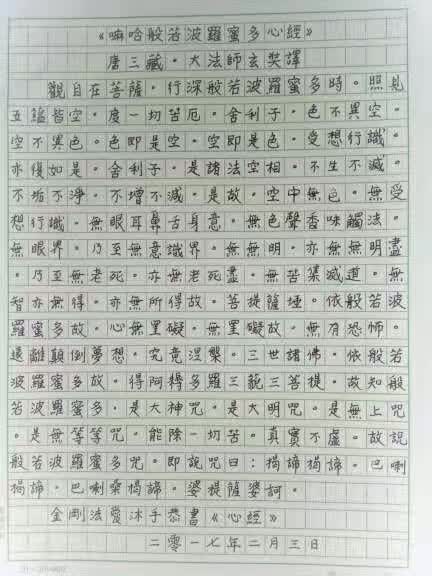 《嘛哈般若波羅蜜多心經》
唐三藏。大法師玄奘譯
觀自在菩薩。行深般若波羅蜜多時。照見
五蘊皆空。度一切苦厄。舍利子。色不異空。
空不異色。色即是空。空即是色。受想行識。
亦復如是。舍利子。是諸法空相。不生不滅。
不垢不淨。不增不減。是故。空中無色。無受
想行識。無眼耳鼻舌身意。無色聲香味觸法。
無眼界。乃至無意識界。無無明。亦無無明盡
。乃至無老死。亦無老死盡。無苦集滅道。無
智亦無得。亦無所得故。菩提薩埵。依般若波
羅蜜多故。心無罣礙。無罣礙故。無有恐怖。
遠離顛倒夢想。究竟涅槃。三世諸佛。依般若
波羅蜜多故。得阿耨多羅三藐三菩提。故知般
若波羅蜜多。是大神咒。是大明咒。是無上咒
。是無等等咒。能除一切苦。真實不虛。故說
般若波羅蜜多咒。即說咒曰：揭諦揭諦。巴喇
揭諦。巴喇桑揭諦。婆提薩婆訶。
金剛法愛沐手恭書《心經》
二零一七年二月三日